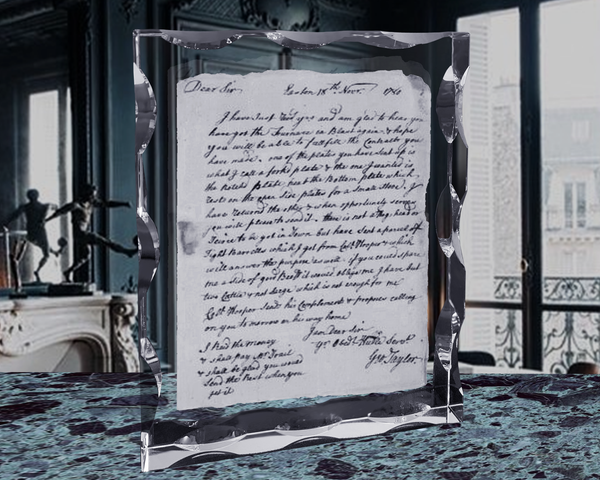 Dear Sir
Easton 18th Novr. 1780
I have Just recd yrs and am glad to hear you
have got the Furnace in Blast again & hope
you will be able to fullfill the Contracts you
have made. one of the plates you have sent up is
what I call a forke plate & the one I wanted is
the Notch'd Plate, next the Bottom plate which
rests on the open side plates for a Small Stove, I
have returned the other & when opportunity serves
you will please to send it. there is not a Hogshead or
Tierce to be got in Town but have sent a parcel off
Tight Barrells which I got from Coll. Hooper & which
will answer the purpose as well. if you could spare
me a side of good Beef it would oblige me I have but
two Cattle & not large which is not enough for me
Coll. Hooper sends his Compliments & proposes calling
on you to morrow on his way home
I am Dear Sir
yr. Obedt. Huble Servt.
Geo Taylor
I Recd the money
& shall pay Mr. Trail
& shall be glad you would
send the Rest when you
get it